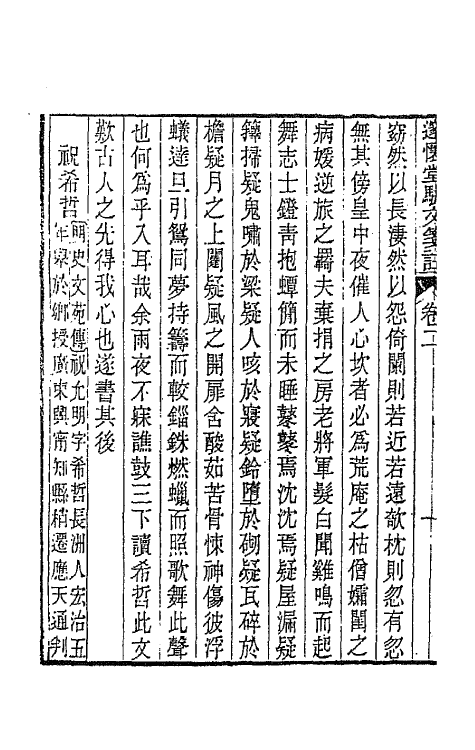 邃懷堂駢文箋註 卷二 十
窈然以長淒然以怨倚闌則若近若遠欹枕則忽有忽
無其傍皇中夜催人心坎者必為荒庵之枯僧孀閨之
病媛逆旅之羈夫棄捐之房老將軍髮白聞雞鳴而起
舞志士鐙靑抱蟫簡而未睡鼕鼕焉沈沈焉疑屋漏疑
籜掃疑鬼嘯於梁疑人咳於寢疑鈴墮於砌疑瓦碎於
檐疑月之上闌疑風之開扉含酸茹苦骨悚神傷彼浮
蟻達旦引鴛同夢持籌而較錙銖燃蠟而照歌舞此聲
也何為乎入耳哉余雨夜不寐譙鼓三下讀希哲此文
歎古人之先得我心也遂書其後
祝希哲 明史文苑傳祝允明字希哲長洲人宏治五
年舉於鄉授廣東興甯知縣稍遷應天通判